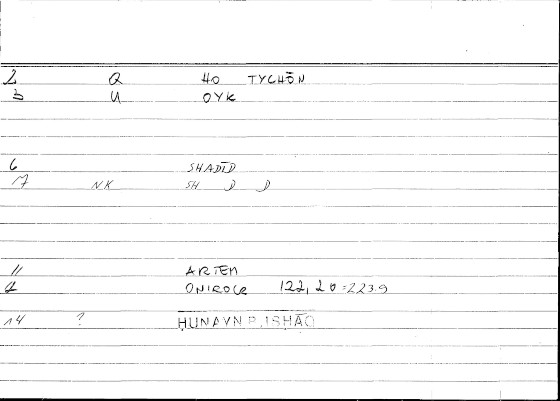 2 Q HO TYCHŌN
3 U OYK
6 SHADĪD
7 NK SH D D
11 ARTEM
ONIROCR 122,20=223.9
14 ? ḤUNAYN B. ISḤĀQ